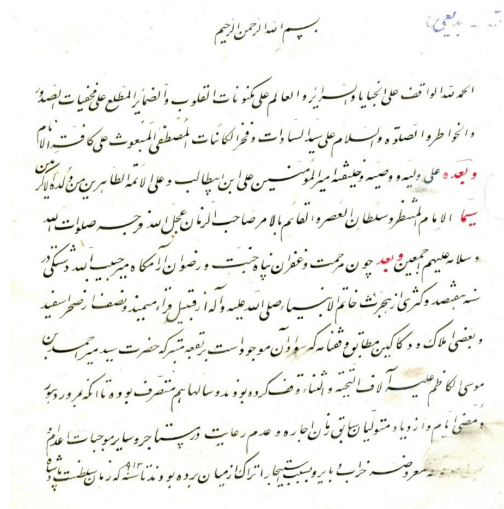 بسم الله الرحمن الرحیم
الحمد لله الواقف علی الخبایا والسرایر والعالم علی مکنونات القلوب والضمایر المطلع علی مخفیات الصدور
والخواطر والصلوة والسلام علی سید السادات و فخر الکائنات المصطفی المبعوث علی کافة الانام
و بعده علی ولیه و وصیه و خلیفته امیر المؤمنین علی ابن ابیطالب و علی الائمة الطاهرین من ولده الاکرمین
سیما الامام المنتظر و سلطان العصر والقائم بالامر صاحب الزمان عجل الله فرجه صلوات الله
و سلامه علیهم اجمعین و بعد چون مرحمت و غفران پناه جنت و رضوان آرامگاه میر حبیب الله دشتکی در
سنه هفتصد و کثری از هجرت خاتم الانبیاء صلی الله علیه و آله از قبیل مزارع میمند و نصف از صحرا سفید
و بعضی املاک و دکاکین مطابق وقفنامه که سواد آن موجود است بر بقعه متبرکه حضرت سید میر احمد بن
موسی الکاظم علیه آلاف التحیة والثناء وقف کرده بودند و سالها هم متصرف بوده تا آنکه بمرور دهور
و مضی ایام و ازدیاد متولیان سابق زمان اجاره و عدم رعایت در مستاجر و سایر موجبات اعداد
معروضه خراب و بایر و بسبب استیجار اتراک از میان برده بودند تا سنه ۹۱۲ که زمان سلطنت پادشاه